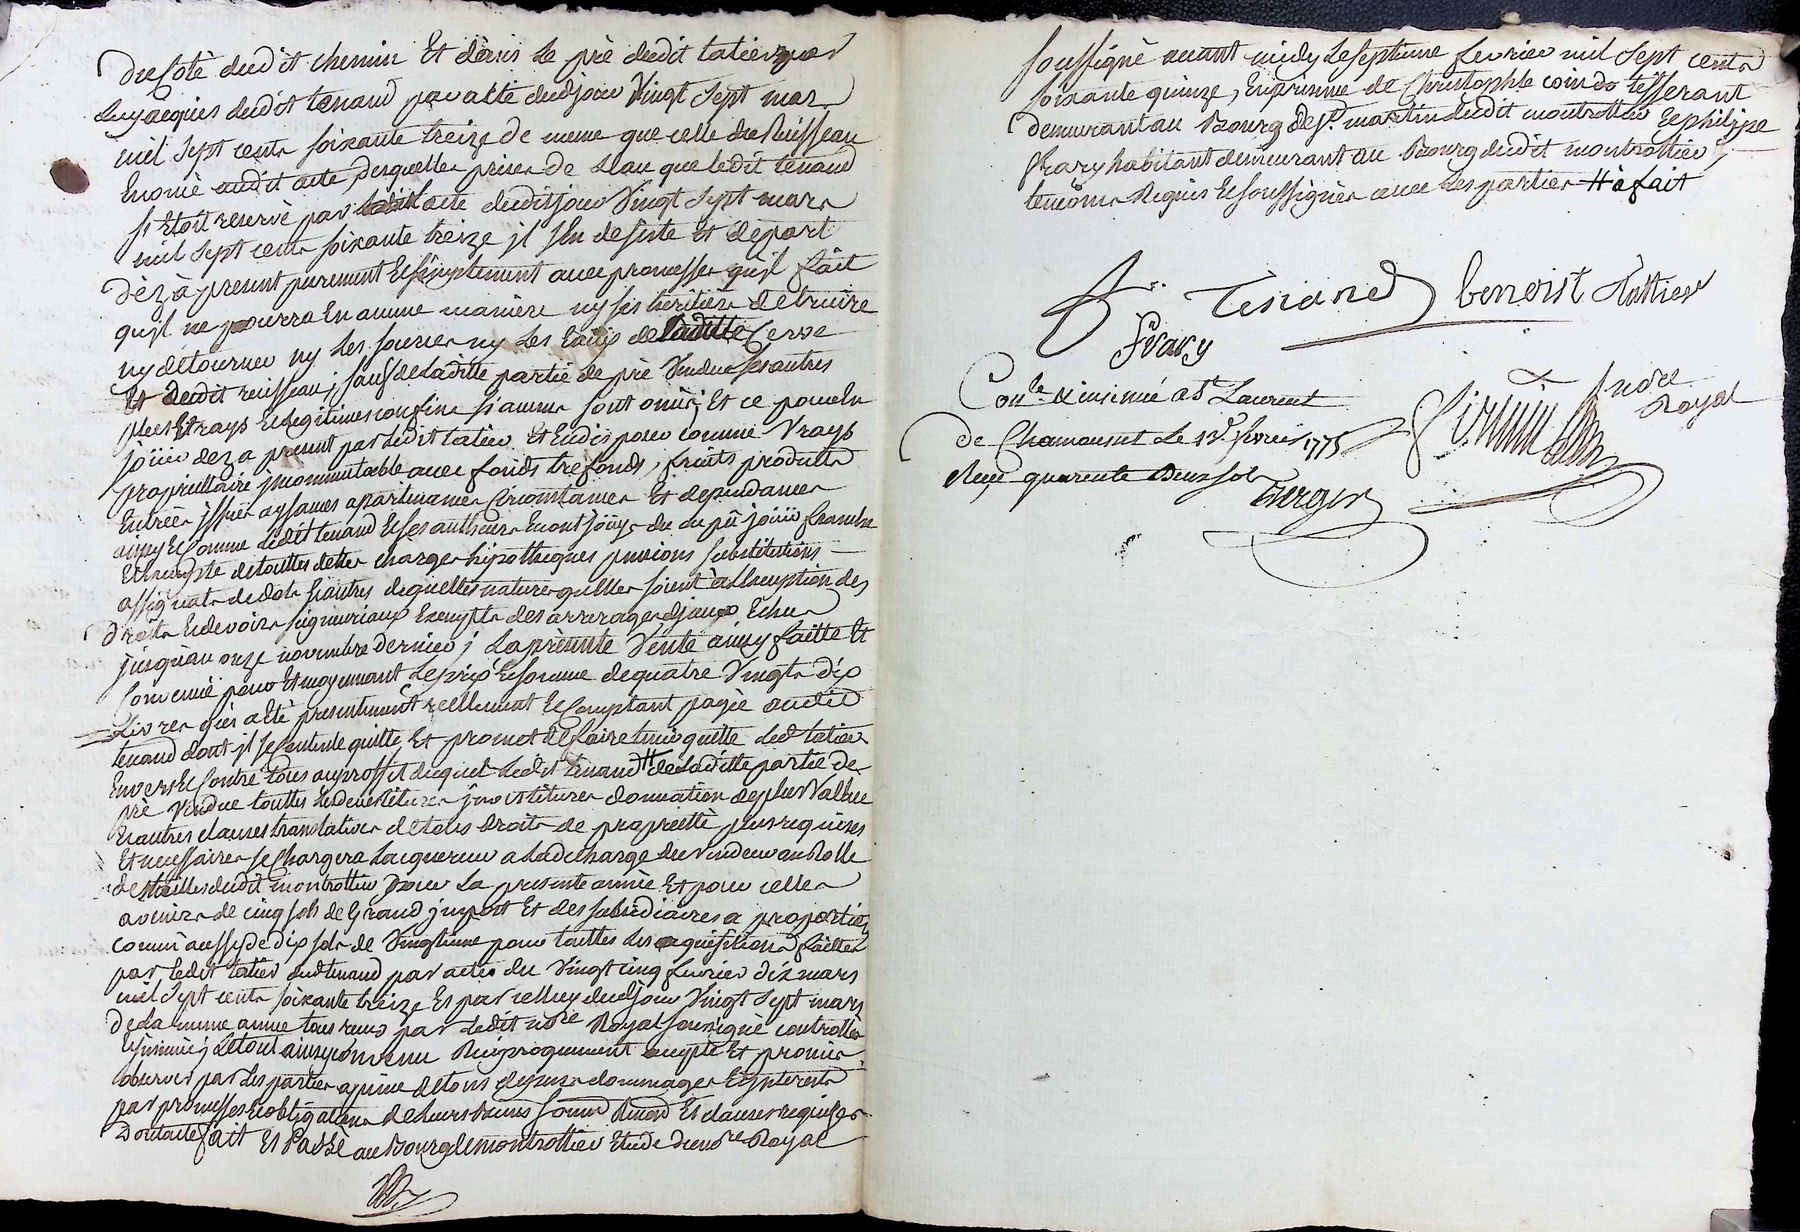 du coté dudit chemin Et dans le pré dudit tatier par
luy acquies dudit tenaud par acte dudjour Vingt sept mars
mil sept cents soixante treize de meme que celle du Ruisseau
Enoncé audit acte, desquelles prises de Leau que ledit tenaud
s'Etoit reservé par acte duditjour Vingt sept mars
mil sept cents soixante treize jl s'En desiste Et depart
déz à present purement Et simplement avec promesses qu'jl fait
qu'jl ne pourra En aucune maniere ny ses heritiers detruire
ny detourner ny Les sources ny Les Eaux de laditte serve
Et dudit ruisseau; sauf de laditte partie de pré Vendue ses autres
plus Etrays Et legitimes confins si aucuns sont omis; Et ce pour En
joüir dez a present par ledit tatier Et En disposer comme Vrays
proprietaire jncommutable avec fonds trefonds, fruits produits
Entrées jssues aysances apartenances Circonstances Et dependances
ainsy Et comme ledit tenaud Et ses autheurs En ont joüys du ou pû joüir franche
Et Exempte de touttes dettes charges hipotheques pensions substitutions
assignats de dots Et autres de quelles nature qu'elles soient à l'Exception des
droits Et devoirs seigneuriaux Exempts des arrerages djceux Echus
jusqu'au onze novembre dernier; La présente Vente ainsy faitte Et
Convenüe pour Et moyennant Le prix Et somme de quatre Vingts dix
Livres qui a Eté presentement reellement Et Comptant payée audit
tenaud dont jl se Contente quitte, Et promet de faire tenir quitte ledt tatier
Envers Et Contre tous au proffit duquel Ledit tenaud # de Laditte partie de
pré Vendue touttes Les devestitures jnvestitures donnation de plus Vallue
Et autres clauses translatives de tous droits de proprieté plus requises
Et necessaires se Chargera Lacquereur a La decharge du Vendeur au Rolle
des tailles dudit montrottier pour La presente année Et pour celles
avenirs de cinq sols de Grand jmpost Et des subsidiaires a proportion
comme aussy de dix sols de Vingtieme pour touttes Les acquisitions faittes
par ledit tatier dudtenaud par actes du Vingt cinq fevrier dix mars
mil sept cents soixante treize Et par celluy dudjour Vingt sept mars
de la meme année tous reçus par Ledit nore Royal soussigné controllés
Et jnsinués; Le tout ainsy convenu Reciproquement accepté Et promis
observer par Les parties a peine de tous depens dommages Et jnterests
par promesses Et obligations de Leurs biens soumis Renon Et clauses requises
Dont acte fait Et Passé au Bourg de montrottier Etude dunore Royal
soussigné avant midy Le septieme fevrier mil sept cents
soixante quinze, En presence de Christophle coindo tisserant
demeurant au Bourg de St. martin dudit montrottier Et philippe
frary habitant demeurant au Bourg dudit montrottier
temoins Requis Et soussignés avec Les parties # a fait
Tenaud benoist tattier
frary
Conlé & insinué a St Laurent
de Chamousset le fevrier 1775
Reçu quarente deux sols
nore
Royal